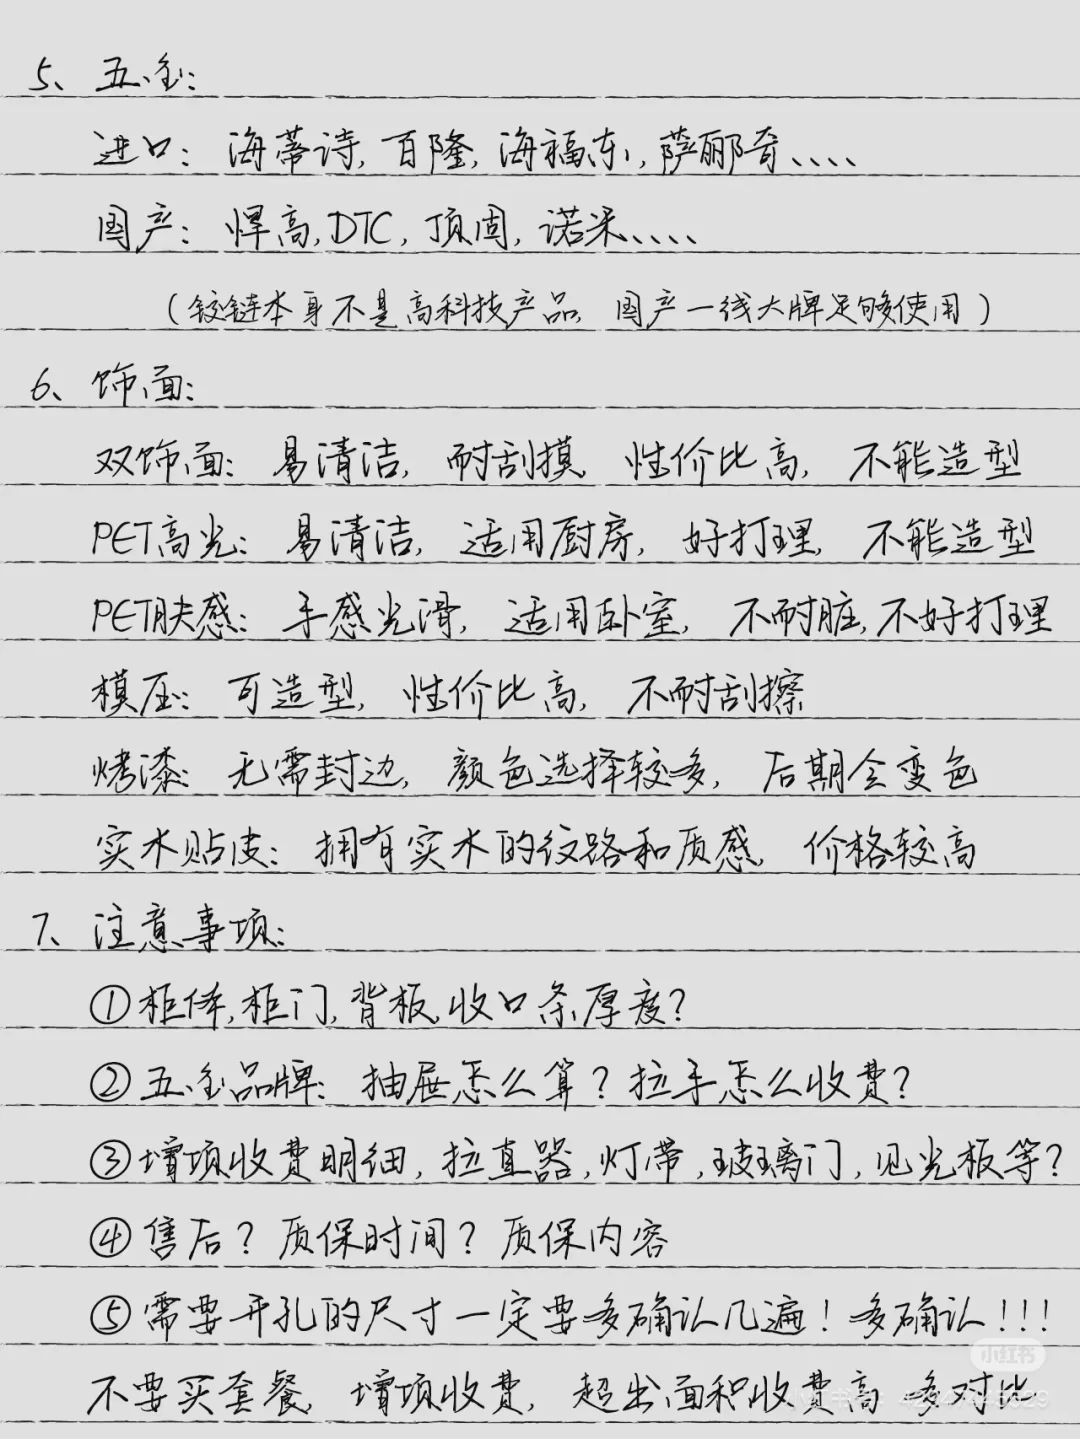 5、五金:
进口: 海蒂诗, 百隆, 海福乐, 萨郦奇、、、、
国产: 悍高, DTC, 顶固, 诺米、、、、
(铰链本身不是高科技产品, 国产一线大牌足够使用)
6、饰面:
双饰面: 易清洁, 耐刮摸, 性价比高, 不能造型
PET高光: 易清洁, 适用厨房, 好打理, 不能造型
PET肤感: 手感光滑, 适用卧室, 不耐脏, 不好打理
模压: 可造型, 性价比高, 不耐刮擦
烤漆: 无需封边, 颜色选择较多, 后期会变色
实木贴皮: 拥有实木的纹路和质感, 价格较高
7、注意事项:
①柜体, 柜门, 背板, 收口条厚度?
②五金品牌: 抽屉怎么算? 拉手怎么收费?
③增项收费明细, 拉直器, 灯带, 玻璃门, 见光板等?
④售后? 质保时间? 质保内容
⑤需要开孔的尺寸一定要多确认几遍! 多确认!!!
不要买套餐, 增项收费, 超出面积收费高 多对比
小红书